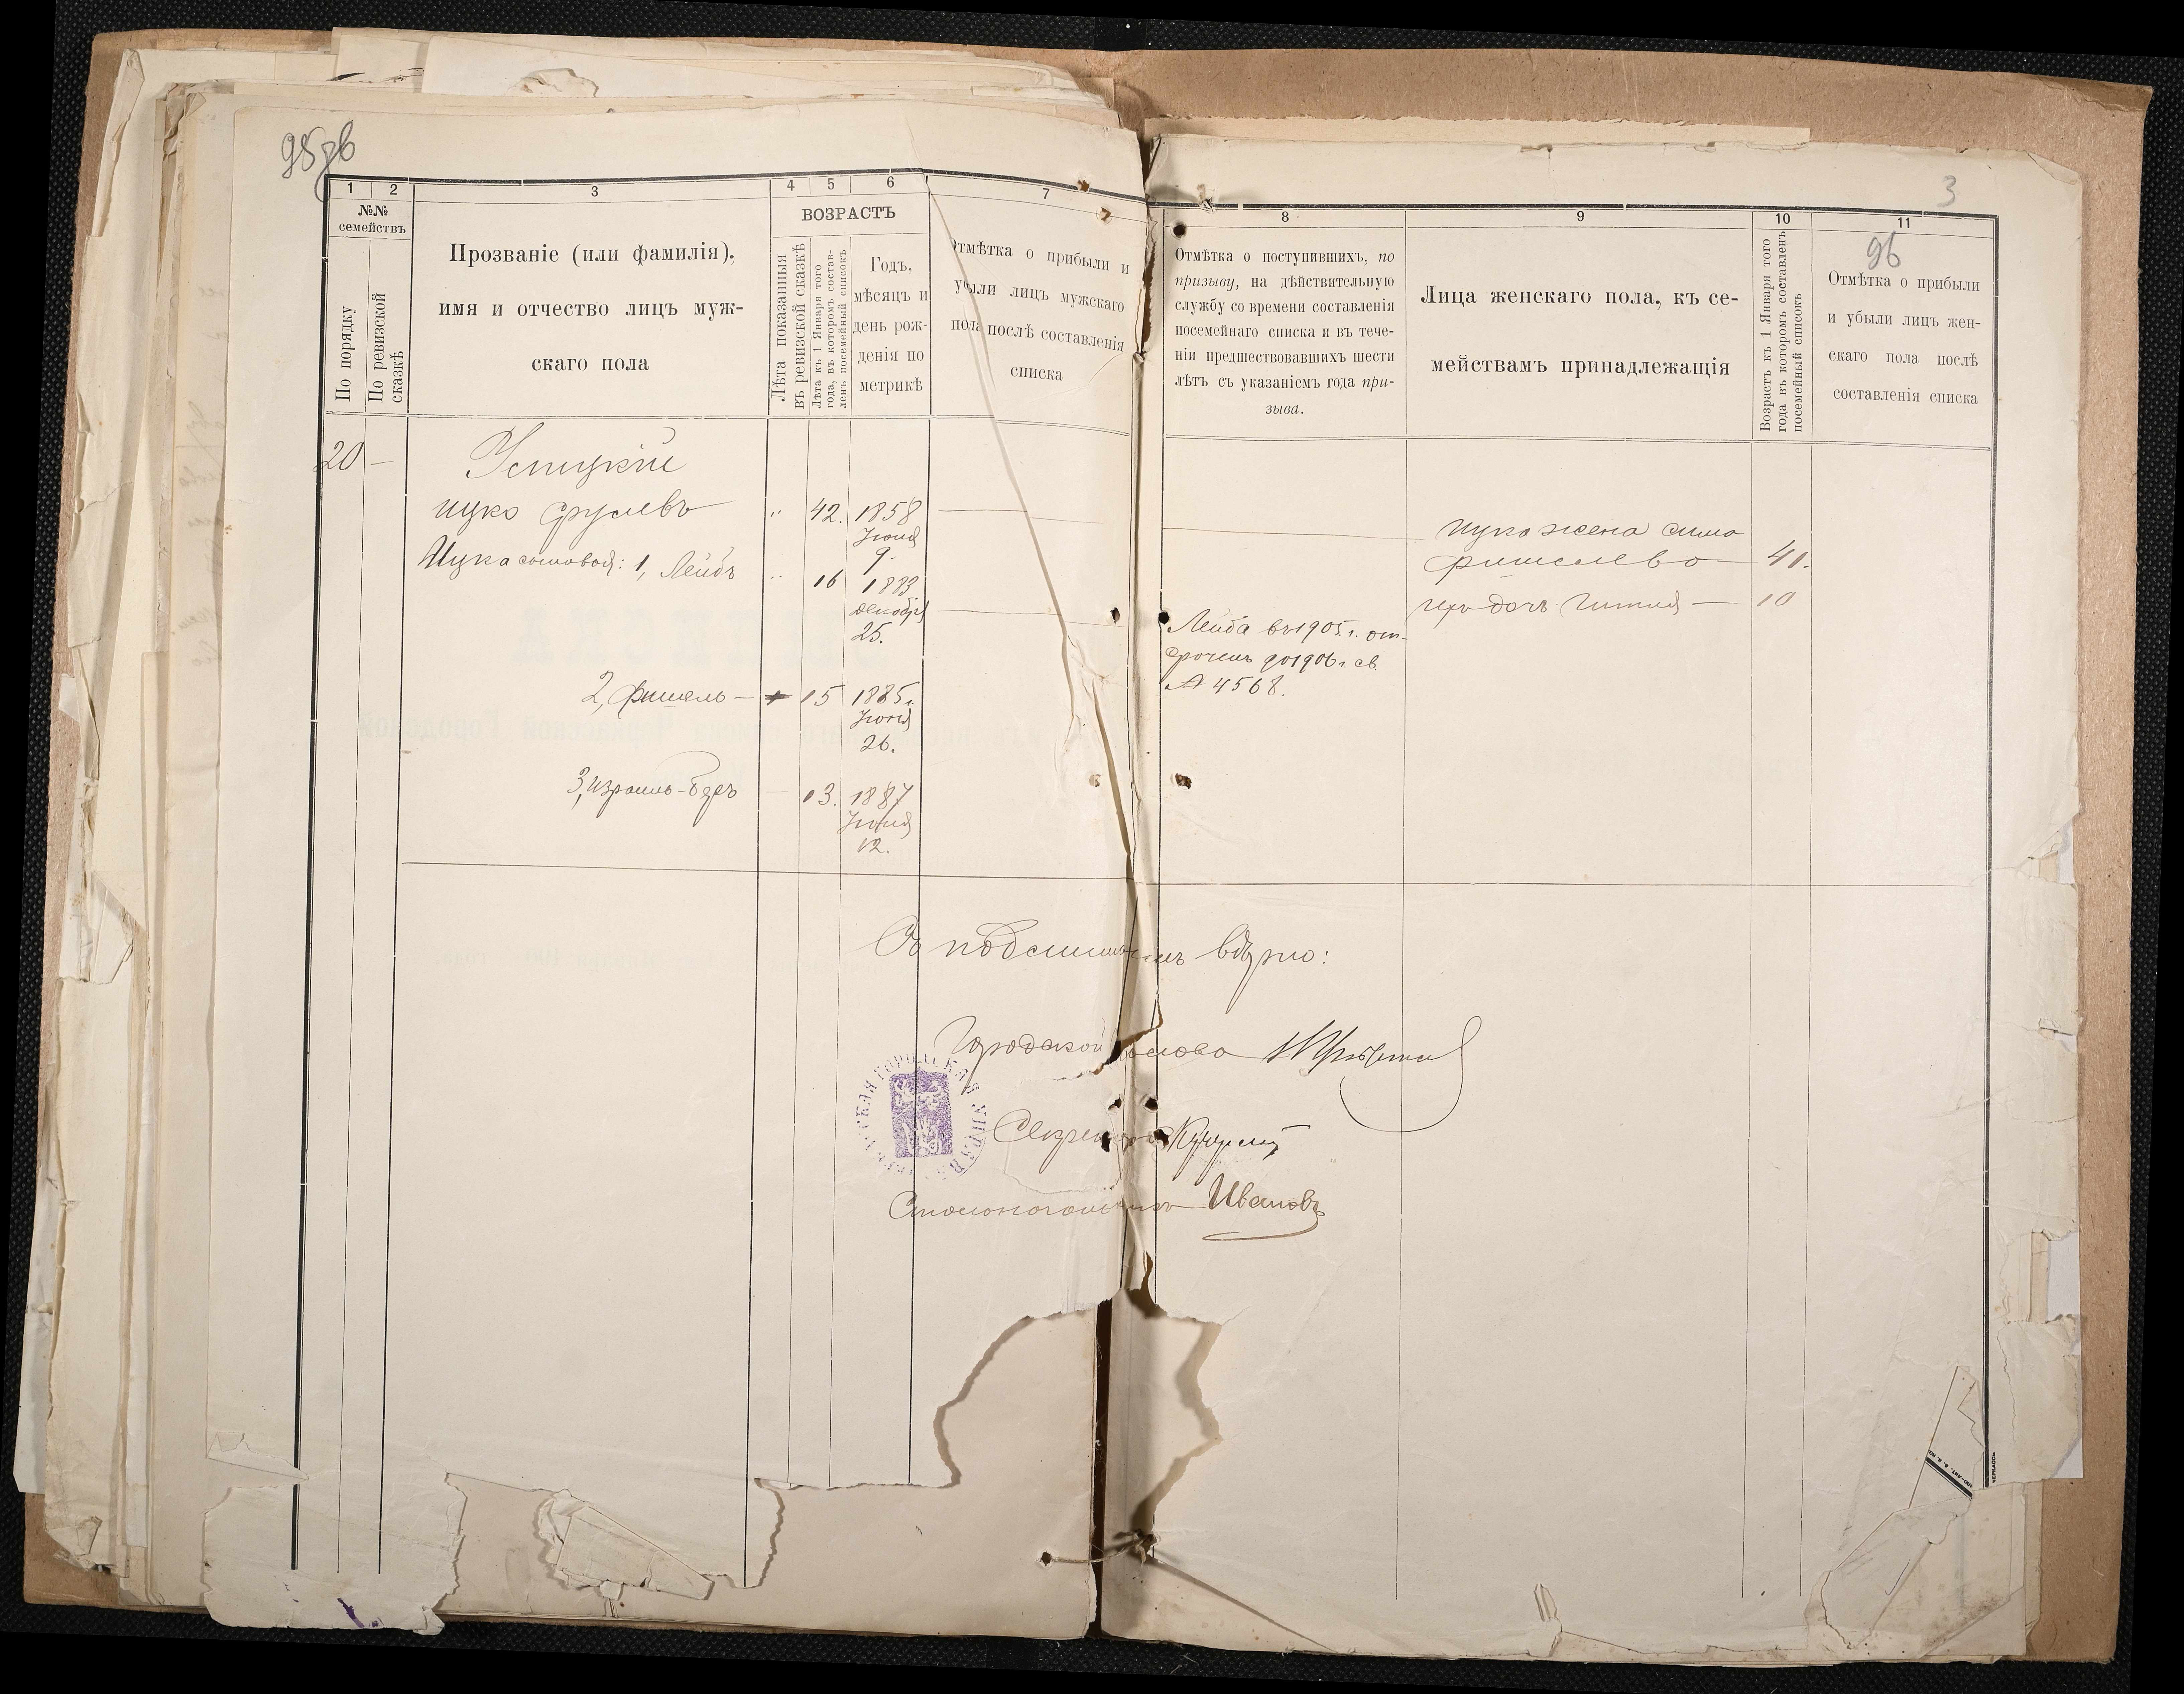 95 зв
3
96
1
2
3
4
5
6
7
8
9
10
11
№№ семействъ
По порядку
По ревизской сказкѣ
Прозваніе (или фамилія),
имя и отчество лицъ муж-
скаго пола
ВОЗРАСТЪ
Лѣта показанныя
въ ревизской сказкѣ
Лѣта къ 1 Января того
года, въ которомъ состав-
ленъ посемейный списокъ
Годъ,
мѣсяцъ и
день рож-
денія по
метрикѣ
Отмѣтка о прибыли и
убыли лицъ мужскаго
пола послѣ составленія
списка
Отмѣтка о поступившихъ, по
призыву, на дѣйствительную
службу со времени составленія
посемейнаго списка и въ тече-
ніи предшествовавшихъ шести
лѣтъ съ указаніемъ года при-
зыва.
Лица женскаго пола, къ се-
мействамъ принадлежащія
Возрастъ къ 1 Января того
года въ которомъ составленъ
посемейный списокъ
Отмѣтка о прибыли
и убыли лицъ жен-
скаго пола послѣ
составленія списка
20 —
Ицко Срулевъ " 42. 1858
Іюня
9.
Ицка сыновья: 1, Лейбъ " 16 1883
декабря
25.
2, Фишель — 15 1885 г.
Іюня
26.
3, Израиль-Беръ — 13. 1887
12.
Лейба въ 1905 г. от-
сроченъ до 1906 г. св.
№ 4568.
Ицка жена Сима
Фишелева — 41.
ихъ дочь Гитля — 10
Съ подлиннымъ вѣрно:
Городской Голова
Секретарь
Столоначальникъ Ивановъ